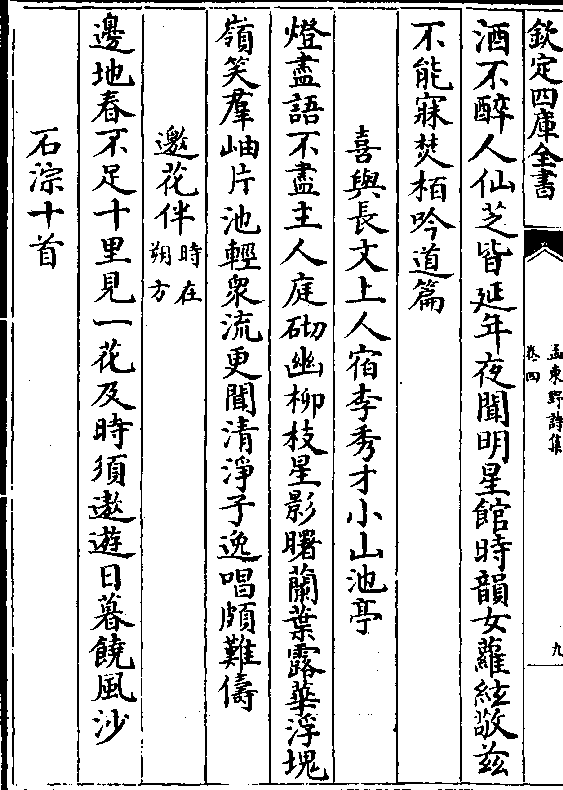 欽定四庫全書
孟東野詩集
卷四
九
酒不醉人仙芝皆延年夜聞明星館時韻女蘿絃敬兹
不能寐焚栢吟道篇
喜與長文上人宿李秀才小山池亭
燈盡語不盡主人庭砌幽柳枝星影曙蘭葉露華浮塊
嶺笑羣岫片池輕衆流更聞清淨子逸唱頗難儔
邀花伴時在
朔方
邊地春不足十里見一花及時須遨遊日暮饒風沙
石淙十首